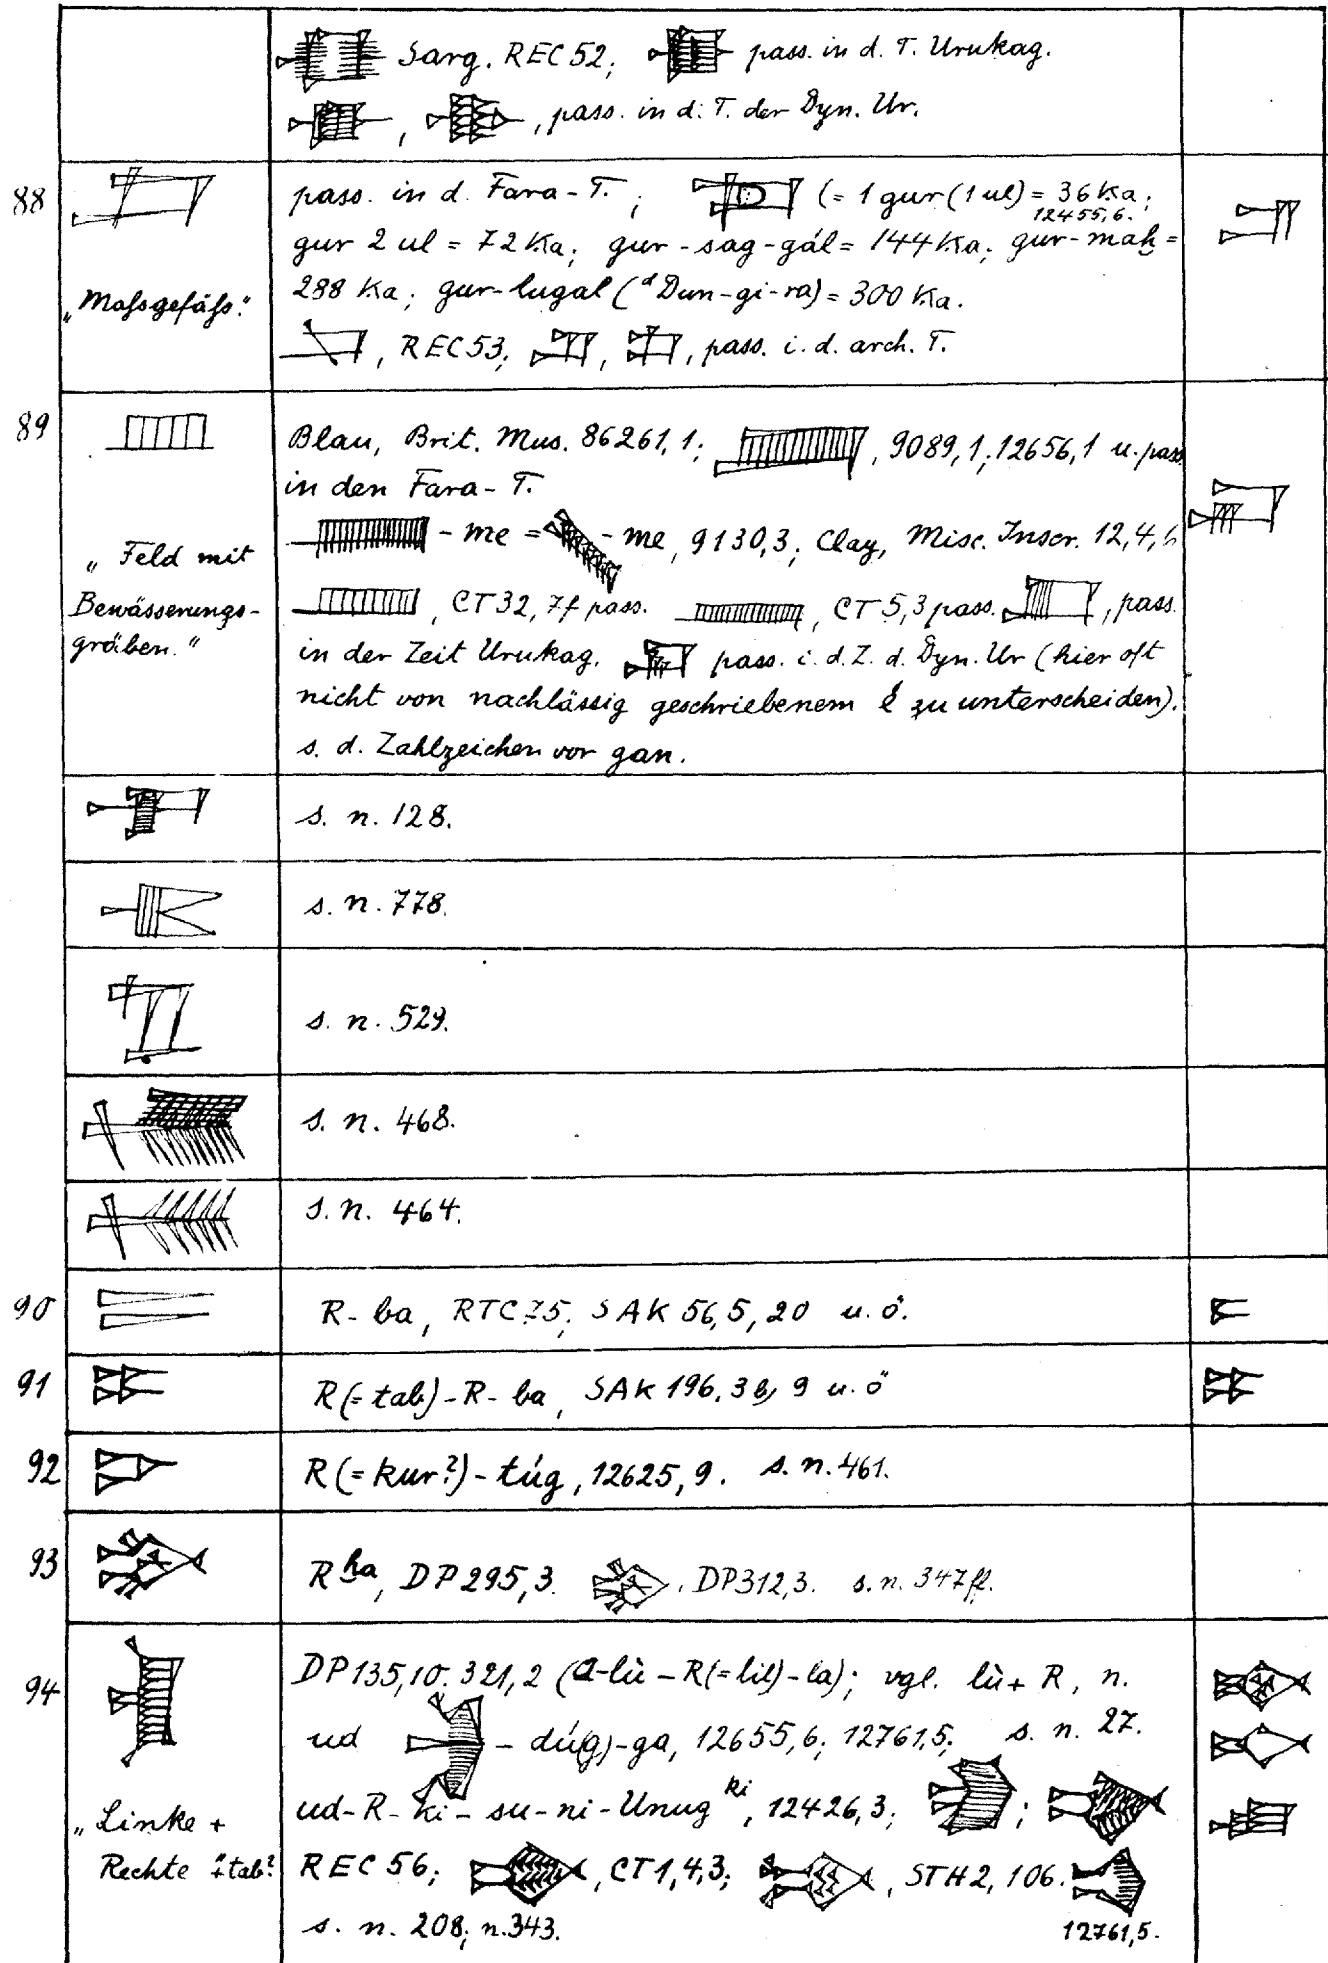 Sarg. REC 52; pass. in d. T. Urukag.
, , pass. in d. T. der Dyn. Ur.
88
pass. in d. Fara-T.; (= 1 gur (1 ul) = 36 Ka;
12455,6.
gur 2 ul = 72 Ka; gur-sag-gál = 144 Ka; gur-maḫ =
„Maſsgefäſs.“
288 Ka; gur-lugal (ᵈDun-gi-ra) = 300 Ka.
, REC 53; , , pass. i. d. arch. T.
89
Blau, Brit. Mus. 86261,1; , 9089,1; 12656,1 u. pass
in den Fara-T.
-me = -me, 9130,3; Clay, Misc. Inscr. 12,4,6
„Feld mit
Bewässerungs-
gräben.“
, CT 32, 7f pass. , CT 5,3 pass. , pass.
in der Zeit Urukag. pass. i. d. Z. d. Dyn. Ur (hier oft
nicht von nachlässig geschriebenem é zu unterscheiden).
s. d. Zahlzeichen vor gan.
s. n. 128.
s. n. 778.
s. n. 529.
s. n. 468.
s. n. 464.
90
R-ba, RTC 75; SAK 56,5,20 u. ö.
91
R (= tab)-R-ba, SAK 196, 3b, 9 u. ö
92
R (= kur?)-túg, 12625,9. s. n. 461.
93
R ḫa, DP 295,3. , DP 312,3. s. n. 347 ff.
94
DP 135,10. 321,2 (a-lù-R(=lil)-la); vgl. lù + R, n.
ud -dúg)-ga, 12655,6; 12761,5; s. n. 27.
ud-R-ki-su-ni-Unug ki, 12426,3; ;
„Linke +
Rechte “ + tab?
REC 56; , CT 1,4,3; , STH 2, 106.
s. n. 208; n. 343.
12761,5.